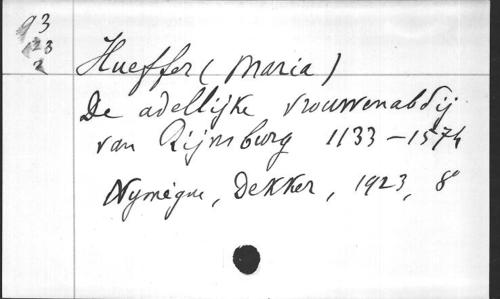 93
123
2
Hueffer (Maria)
De adellijke vrouwenabdij
van Rijnsburg 1133-1574
Nymègue, Dekker, 1923, 8°